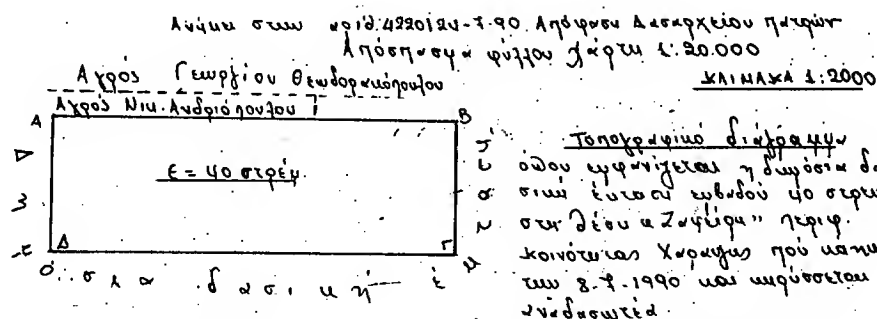 Ανήκει στην αριθ. 4220/24-7-90 Απόφαση Δασαρχείου Πατρών
Απόσπασμα φύλλου χάρτη 1:20.000
Αγρός Γεωργίου Θεωδορακόπουλου
ΚΛΙΜΑΚΑ 1:2000
Αγρός Νικ. Ανδριόπουλου
Α
Β
Ε = 40 στρέμ.
Δ
Γ
Δημόσια δασική έκταση
Τοπογραφικό διάγραμμα
όπου εμφανίζεται η δημόσια δα
σική έκταση εμβαδού 40 στρεμ
στη θέση "Ζαφείρη" περιφ.
κοινότητας Χαραυγής πού κάηκε
την 8-7-1990 και κηρύσσεται
αναδασωτέα.